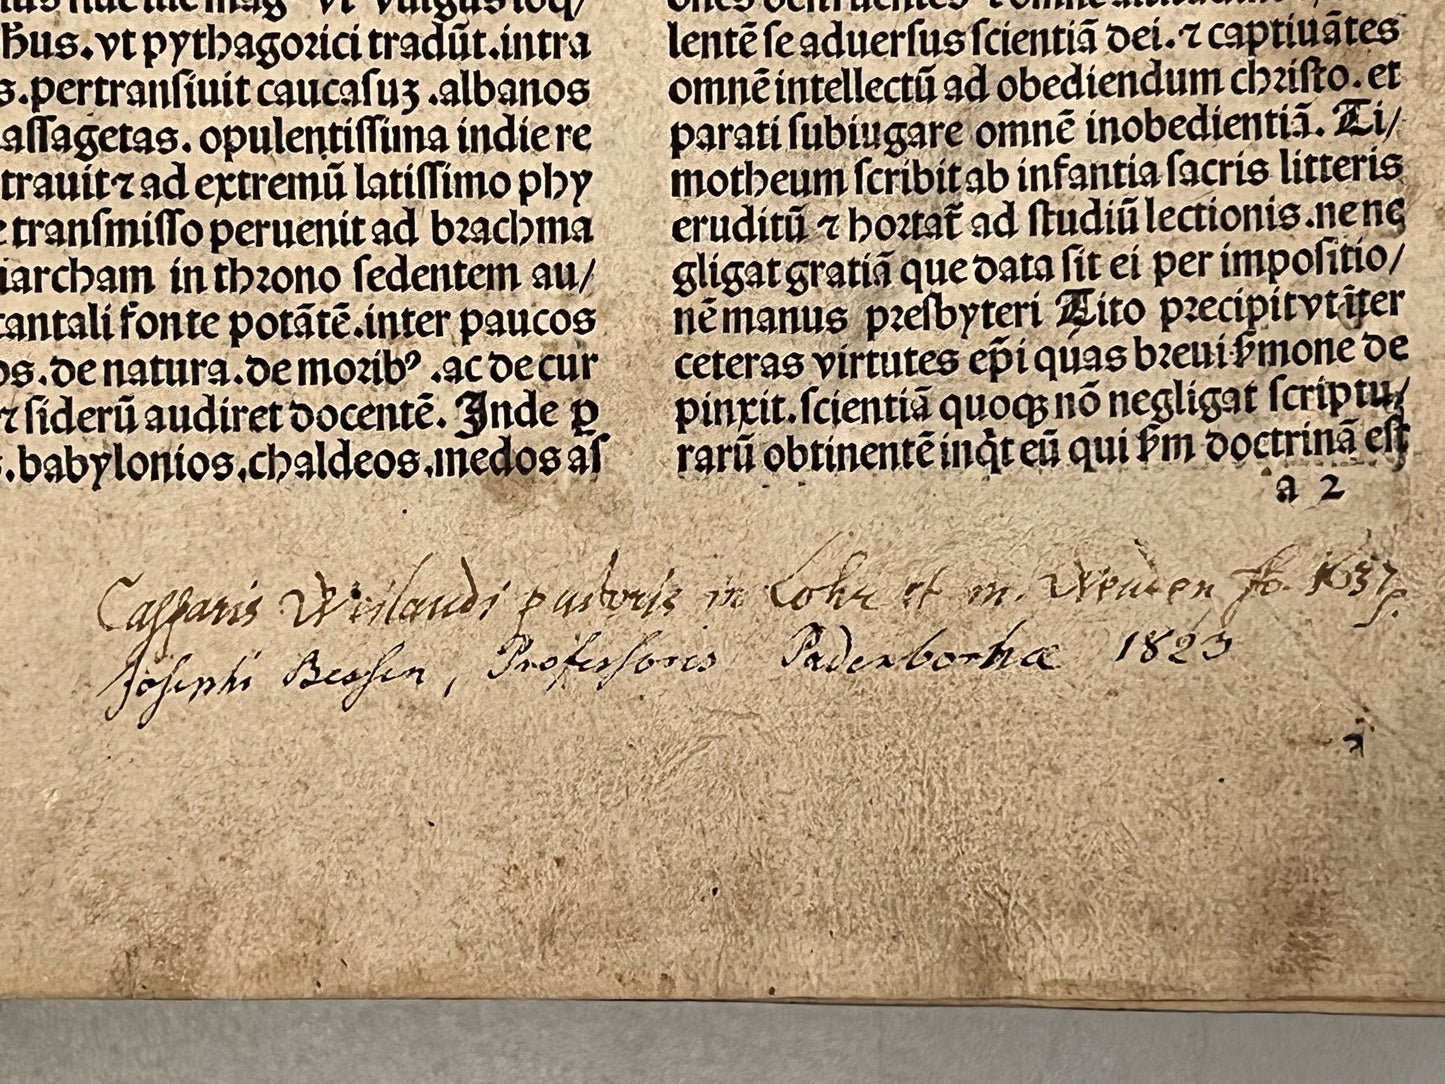 hus. vt pythagorici tradūt. intra
s. pertransiuit caucasuꝫ. albanos
assagetas. opulentissima indie re
trauit ⁊ ad extremū latissimo phy
e transmisso peruenit ad brachma
iarcham in throno sedentem au/
tantali fonte potātē. inter paucos
os. de natura. de moribꝰ. ac de cur
⁊ siderū audiret docentē. Inde ꝑ
s. babylonios, chaldeos. medos aſ
lentē se aduersus scientiā dei. ⁊ captiuātes
omnē intellectū ad obediendum christo. et
parati subiugare omnē inobedientiā. Ti/
motheum scribit ab infantia sacris litteris
eruditū ⁊ hortat̄ ad studiū lectionis. ne ne
gligat gratiā que data sit ei per impositio/
nē manus presbyteri Tito precipit vt īter
ceteras virtutes ep̄i quas breui ẜmone de
pinxit. scientiā quoqꝫ nō negligat scriptu/
rarū obtinentē inq̇t eū qui ẜm doctrinā est
a 2
Caspparis Weilandi pastoris in Lohr et in 1637
Josephi Bessen, Professoris Paderbornæ 1823